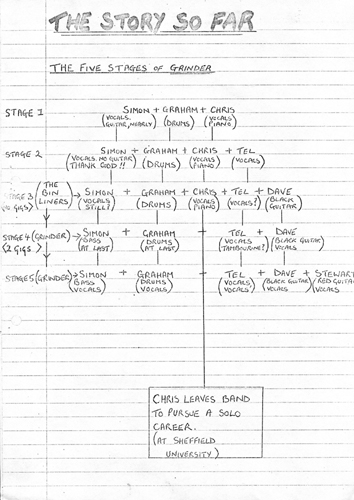 THE STORY SO FAR
THE FIVE STAGES OF GRINDER
STAGE 1 SIMON + GRAHAM + CHRIS
(VOCALS. GUITAR, NEARLY) (DRUMS) (VOCALS PIANO)
STAGE 2 SIMON + GRAHAM + CHRIS + TEL
(VOCALS. NO GUITAR THANK GOD!!) (DRUMS) (VOCALS PIANO) (VOCALS)
STAGE 3 (THE BIN LINERS) → SIMON + GRAHAM + CHRIS + TEL + DAVE
GIGS> (VOCALS STILL?) (DRUMS) (VOCALS PIANO) (VOCALS?) (BLACK GUITAR)
STAGE 4 (GRINDER) → SIMON + GRAHAM TEL + DAVE
<2 GIGS> (BASS AT LAST) (DRUMS AT LAST) (VOCALS TAMBOURINE?) (BLACK GUITAR VOCALS)
STAGE 5 (GRINDER) → SIMON + GRAHAM TEL + DAVE + STEWART
(BASS VOCALS) (DRUMS VOCALS) (VOCALS VOCALS) (BLACK GUITAR VOCALS) (RED GUITAR VOCALS
CHRIS LEAVES BAND
TO PURSUE A SOLO
CAREER.
(AT SHEFFIELD
UNIVERSITY)